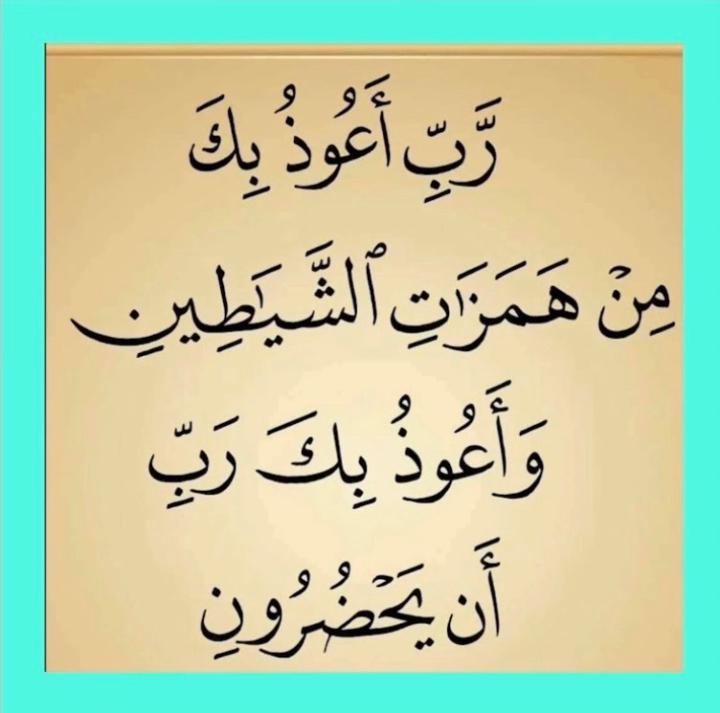 رَّبِّ أَعُوذُ بِكَ
مِنْ هَمَزَٰتِ ٱلشَّيَٰطِينِ
وَأَعُوذُ بِكَ رَبِّ
أَن يَحْضُرُونِ